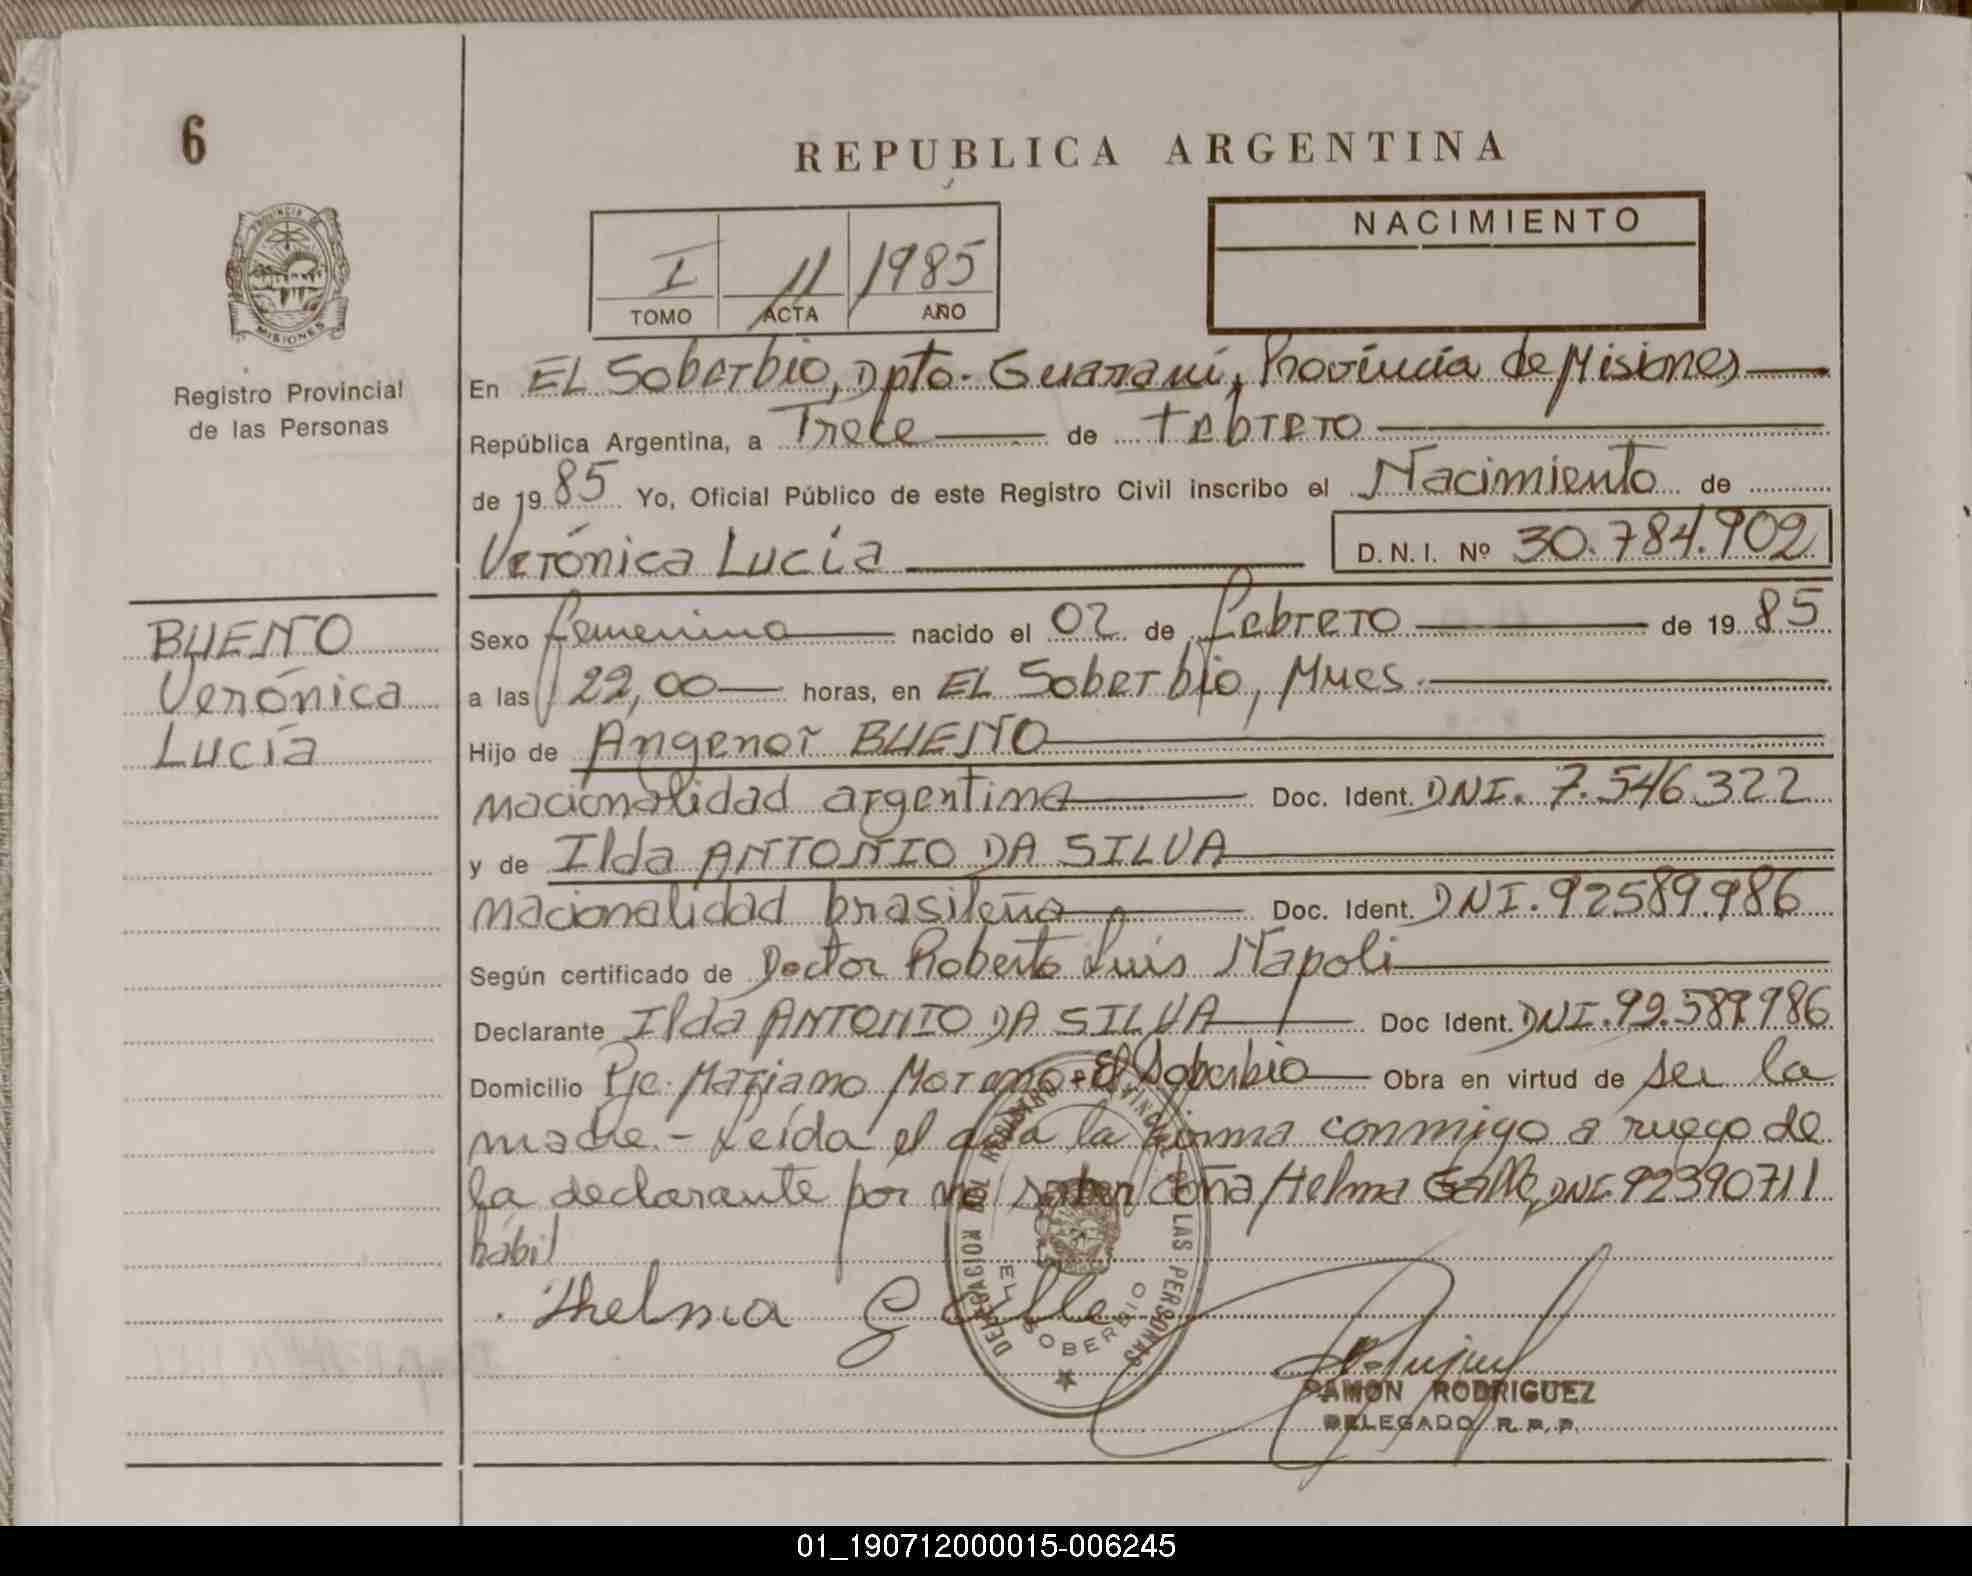 6
REPUBLICA ARGENTINA
PROVINCIA DE
MISIONES
Registro Provincial
de las Personas
I 11 1985
TOMO ACTA AÑO
NACIMIENTO
En EL Soberbio, Dpto. Guaraní, Provincia de Misiones
República Argentina, a Trece de febrero
de 1985 Yo, Oficial Público de este Registro Civil inscribo el Nacimiento de
Verónica Lucía D.N.I. Nº 30.784.902
BUENO
Verónica
Lucía
Sexo femenino nacido el 02 de febrero de 1985
a las 22,00 horas, en EL Soberbio, Mnes.
Hijo de Angenor BUENO
nacionalidad argentina Doc. Ident. DNI. 7.546.322
y de Ilda ANTONIO DA SILVA
nacionalidad brasileña Doc. Ident. DNI. 92589.986
Según certificado de Doctor Roberto Luis Napoli
Declarante Ilda ANTONIO DA SILVA Doc Ident. DNI. 92.589.986
Domicilio Pje. Mariano Moreno - El Soberbio Obra en virtud de ser la
madre.- Leída el acta la firma conmigo a ruego de
la declarante por no saber doña Helma Galle, DNI. 92390711
hábil
Thelma Galle
DELEGACION DEL REGISTRO PROVINCIAL DE LAS PERSONAS
EL SOBERBIO
RAMON RODRIGUEZ
DELEGADO R.P.P.
01_190712000015-006245